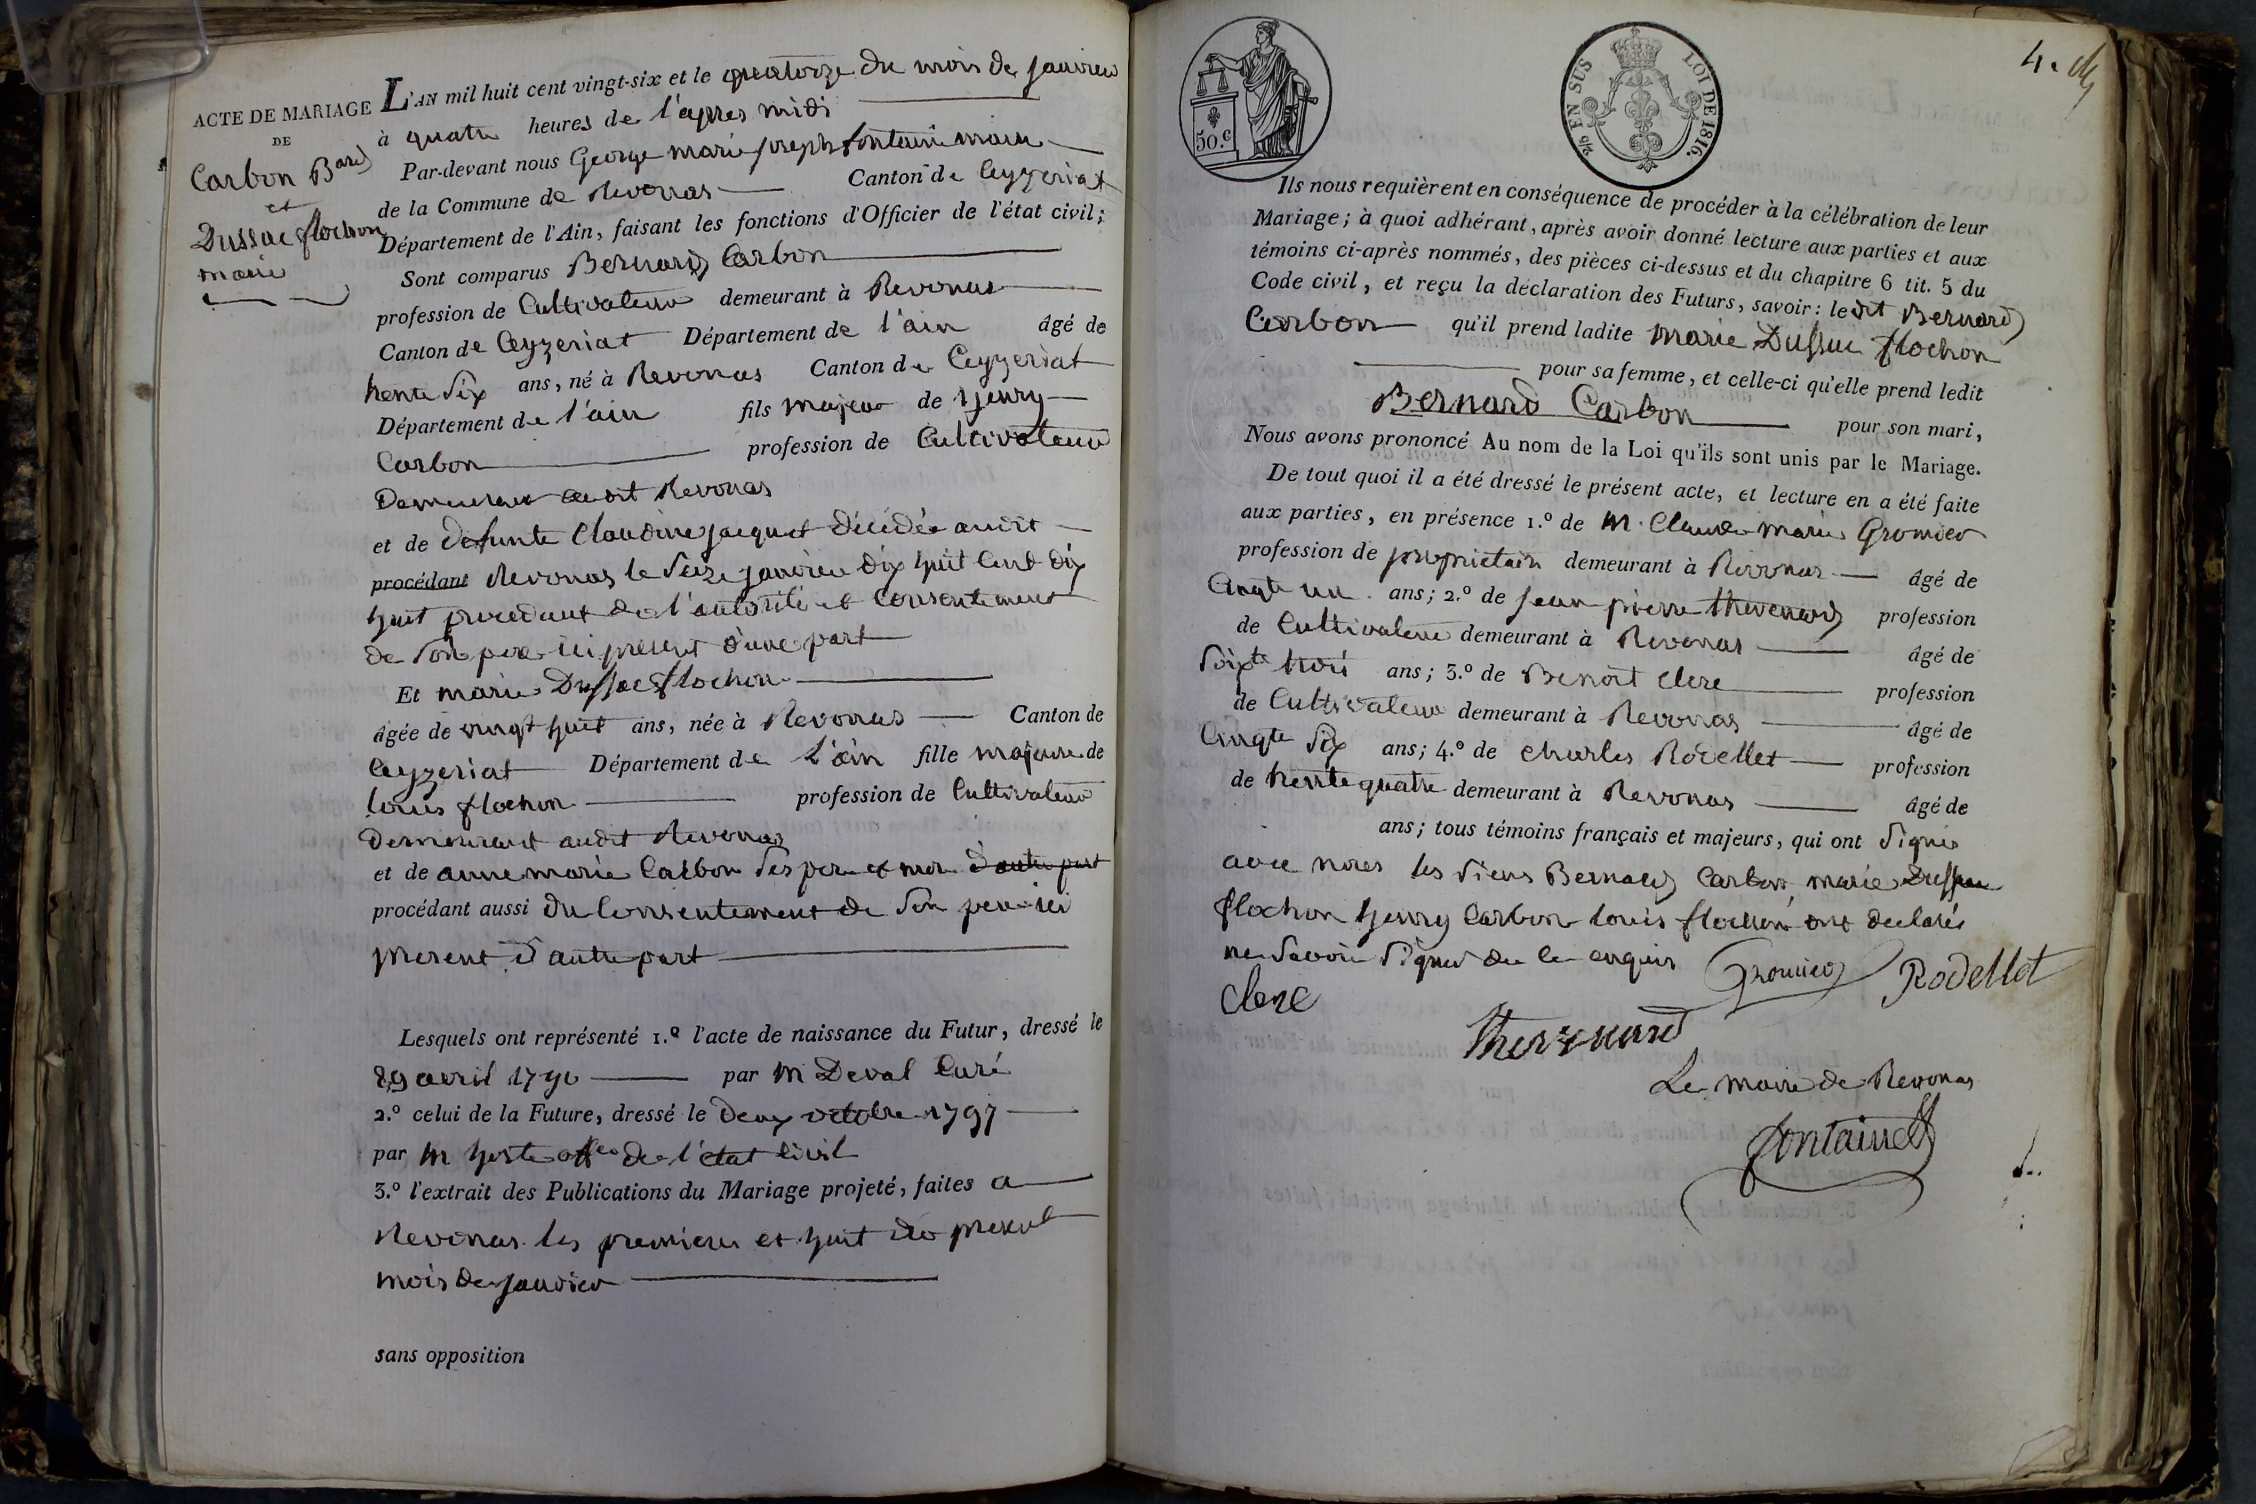 ACTE DE MARIAGE
DE
Carbon B.ard
et
Dussuc flochon
marie
L'AN mil huit cent vingt-six et le quatorze du mois de janvier
à quatre heures de l'apres midi
Par-devant nous George marie joseph fontaine maire
de la Commune de Revonas Canton de Ceyzeriat
Département de l'Ain, faisant les fonctions d'Officier de l'état civil;
Sont comparus Bernard Carbon
profession de Cultivateur demeurant à Revonas
Canton de Ceyzeriat Département de l'ain âgé de
trente six ans, né à Revonas Canton de Ceyzeriat
Département de l'ain fils majeur de henry
Carbon profession de Cultivateur
Demeurant audit Revonas
et de defunte Claudine jacquet décédée audit
procédant Revonas le seize janvier dix huit cent dix
huit procedant de l'autorité et Consentement
de son pere ici présent d'une part
Et marie Dussuc flochon
âgée de vingt huit ans, née à Revonas Canton de
Ceyzeriat Département de L'ain fille majeure de
louis flochon profession de Cultivateur
Demeurant audit Revonas
et de anne marie Carbon ses pere et mere d'autre part
procédant aussi du Consentement de son pere ici
present d'autre part
Lesquels ont représenté 1.º l'acte de naissance du Futur, dressé le
29 avril 1790 par M Deval Curé
2.º celui de la Future, dressé le deux octobre 1797
par M de l'état Civil
3.º l'extrait des Publications du Mariage projeté, faites a
Revonas les premiers et huit du present
mois de janvier
sans opposition
50.c
2/10 EN SUS LOI DE 1816.
4.
Ils nous requièrent en conséquence de procéder à la célébration de leur
Mariage; à quoi adhérant, après avoir donné lecture aux parties et aux
témoins ci-après nommés, des pièces ci-dessus et du chapitre 6 tit. 5 du
Code civil, et reçu la déclaration des Futurs, savoir: ledit Bernard
Carbon qu'il prend ladite Marie Dussuc flochon
pour sa femme, et celle-ci qu'elle prend ledit
Bernard Carbon pour son mari,
Nous avons prononcé Au nom de la Loi qu'ils sont unis par le Mariage.
De tout quoi il a été dressé le présent acte, et lecture en a été faite
aux parties, en présence 1.º de M. Claude marie Gromier
profession de propriétaire demeurant à Revonas âgé de
Cinqte un ans; 2.º de jean pierre thevenard profession
de Cultivateur demeurant à Revonas âgé de
soixte trois ans; 3.º de Benoit Clerc profession
de Cultivateur demeurant à Revonas âgé de
Cinqte six ans; 4.º de Charles Rodellet profession
de trente quatre demeurant à Revonas âgé de
ans; tous témoins français et majeurs, qui ont signé
avec nous les siens Bernard Carbon marie Dussuc
flochon henry Carbon louis flochon ont declarés
ne savoir signer de ce enquis Gromier Rodellet
Clerc
Thevenard
Le maire de Revonas
fontaine